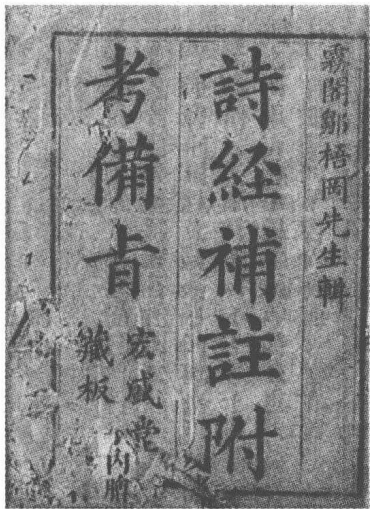 霧閣鄒梧岡先生輯
詩経補註附
考備㫖
宏盛堂
藏板